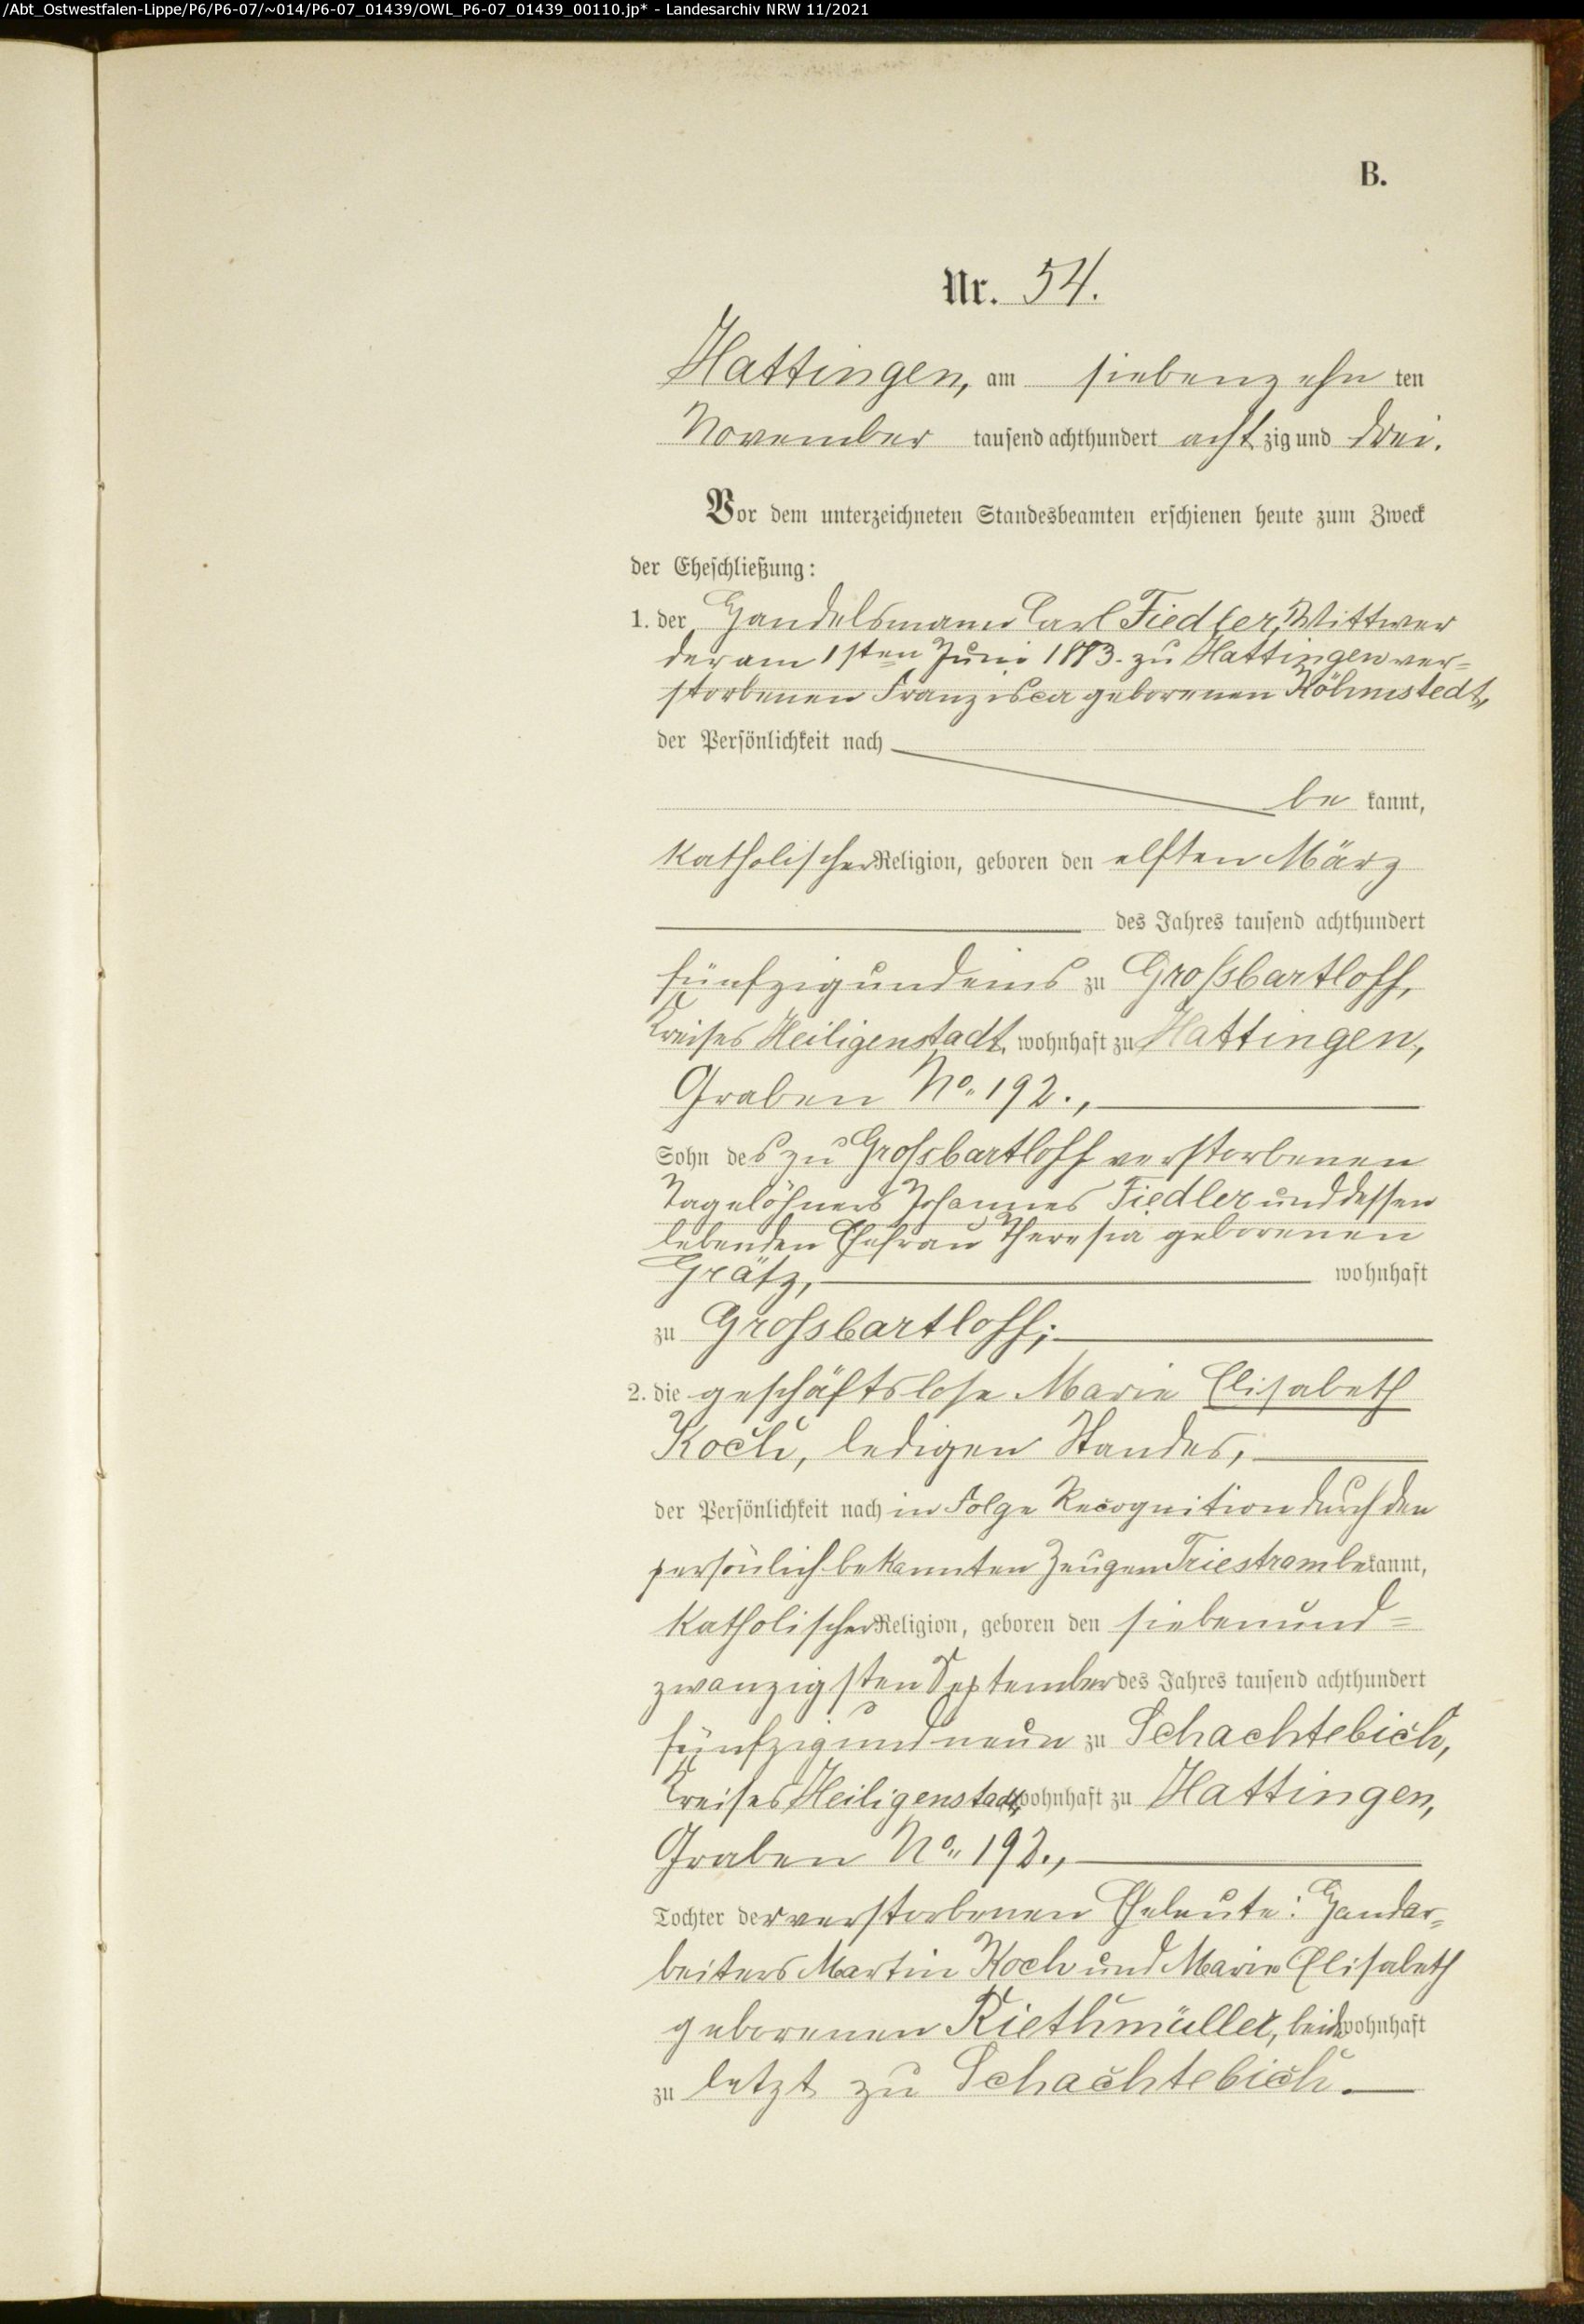 /Abt_Ostwestfalen-Lippe/P6/P6-07/~014/P6-07_01439/OWL_P6-07_01439_00110.jp* - Landesarchiv NRW 11/2021
B.
Nr. 54.
Hattingen, am siebenzehn ten
November tausend achthundert achtzig und drei.
Vor dem unterzeichneten Standesbeamten erschienen heute zum Zweck
der Eheschließung:
1. der Handelsmann Carl Fiedler, Wittwer
der am 1sten Juni 1883. zu Hattingen ver=
storbenen Franzisca geborenen Köhmstedt,
der Persönlichkeit nach
be kannt,
katholischer Religion, geboren den elften März
des Jahres tausend achthundert
fünfzigundeins zu Großbartloff,
Kreises Heiligenstadt, wohnhaft zu Hattingen,
Graben No. 192.,
Sohn des zu Großbartloff verstorbenen
Tagelöhners Johannes Fiedler und dessen
lebenden Ehefrau Theresia geborenen
Grätz, wohnhaft
zu Großbartloff;
2. die geschäftslose Marie Elisabeth
Koch, ledigen Standes,
der Persönlichkeit nach in Folge Recognition durch den
persönlich bekannten Zeugen Triestram bekannt,
katholischer Religion, geboren den siebenund=
zwanzigsten September des Jahres tausend achthundert
fünfzigundneun zu Schachtebich,
Kreises Heiligenstadt, wohnhaft zu Hattingen,
Graben No. 192.,
Tochter der verstorbenen Eheleute: Handar=
beiters Martin Koch und Marie Elisabeth
geborenen Riethmüller, beide wohnhaft
zu letzt zu Schachtebich.